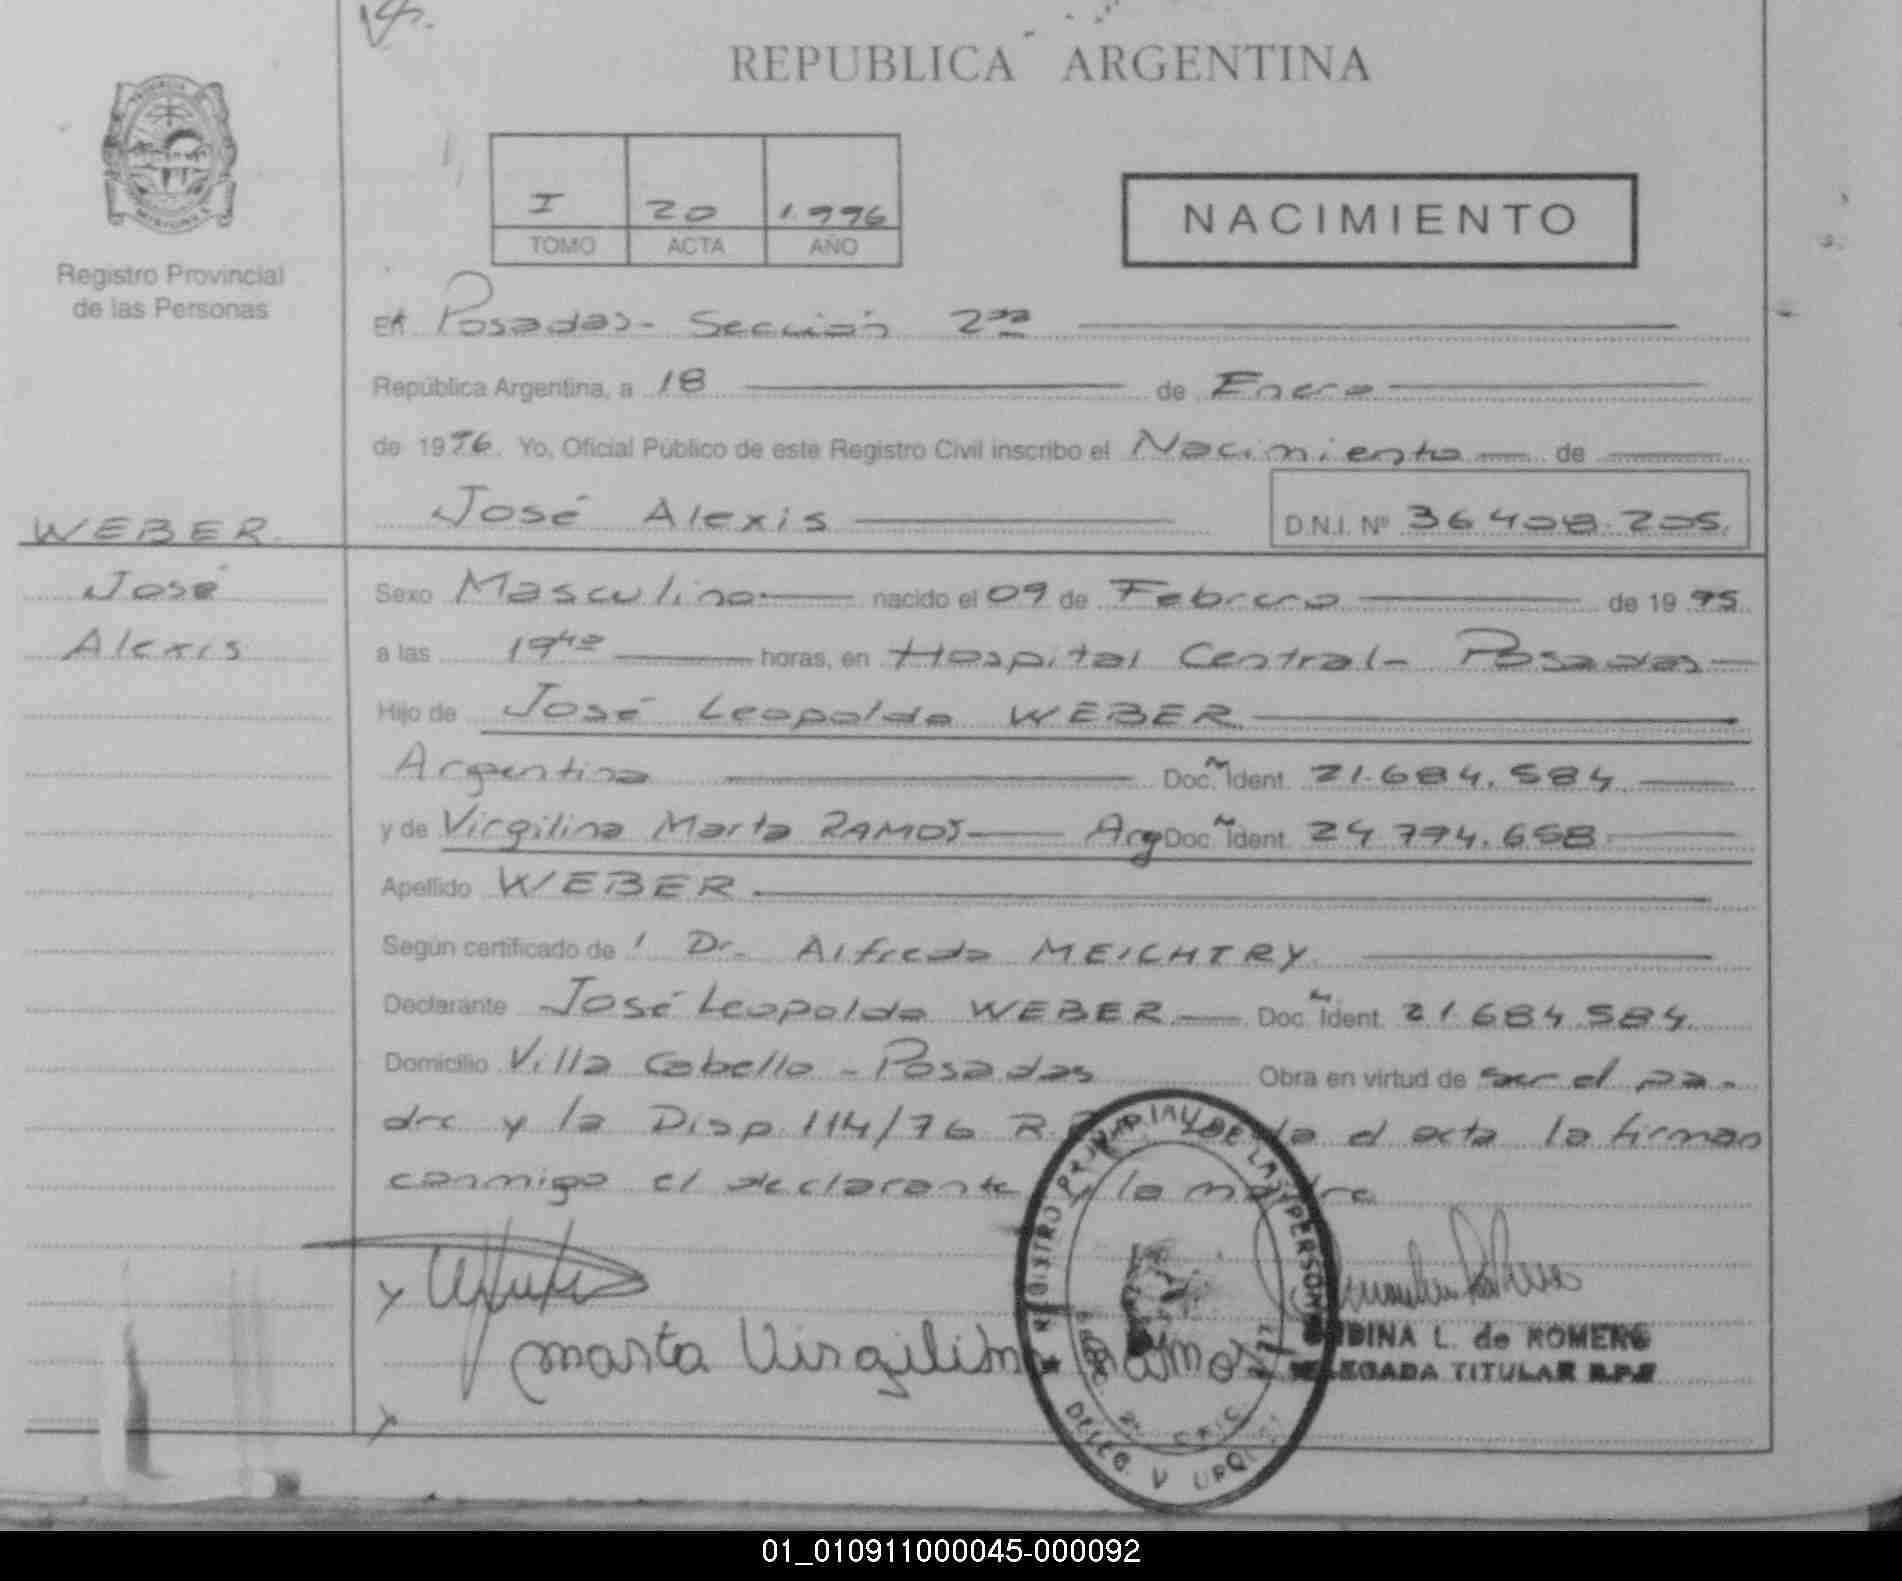 REPUBLICA ARGENTINA
I 20 1.996
TOMO ACTA AÑO
NACIMIENTO
Registro Provincial
de las Personas
En Posadas- Sección 2da
República Argentina, a 18 de Enero
de 1996. Yo, Oficial Público de este Registro Civil inscribo el Nacimiento de
José Alexis D.N.I. Nº 36.408.205.
WEBER.
José
Alexis
Sexo Masculino nacido el 09 de Febrero de 19 95
a las 19 40 horas, en Hospital Central- Posadas
Hijo de José Leopoldo WEBER
Argentino Doc. Ident. 21.684.584
y de Virgilina Marta RAMOS Arg Doc. Ident. 24.794.658
Apellido WEBER
Según certificado de Dr. Alfredo MEICHTRY
Declarante José Leopoldo WEBER Doc. Ident. 21.684.584.
Domicilio Villa Cabello - Posadas Obra en virtud de ser el pa-
dre y la Disp. 114/96 R. el acta la firman
conmigo el declarante y la madre
Marta Virgilina Ramos
L. de ROMERO
DELEGADA TITULAR R.P.P.
REGISTRO PROVINCIAL DE LAS PERSONAS
01_010911000045-000092